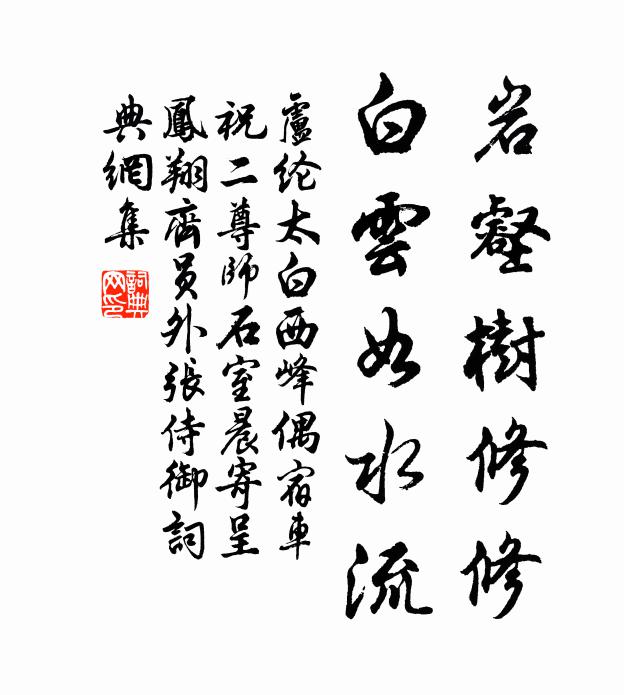 岩壑樹修修
白雲如水流
盧纶太白西峰偶宿車
祝二尊師石室晨寄呈
鳳翔齊员外張侍御詞
典網集
詞典网印